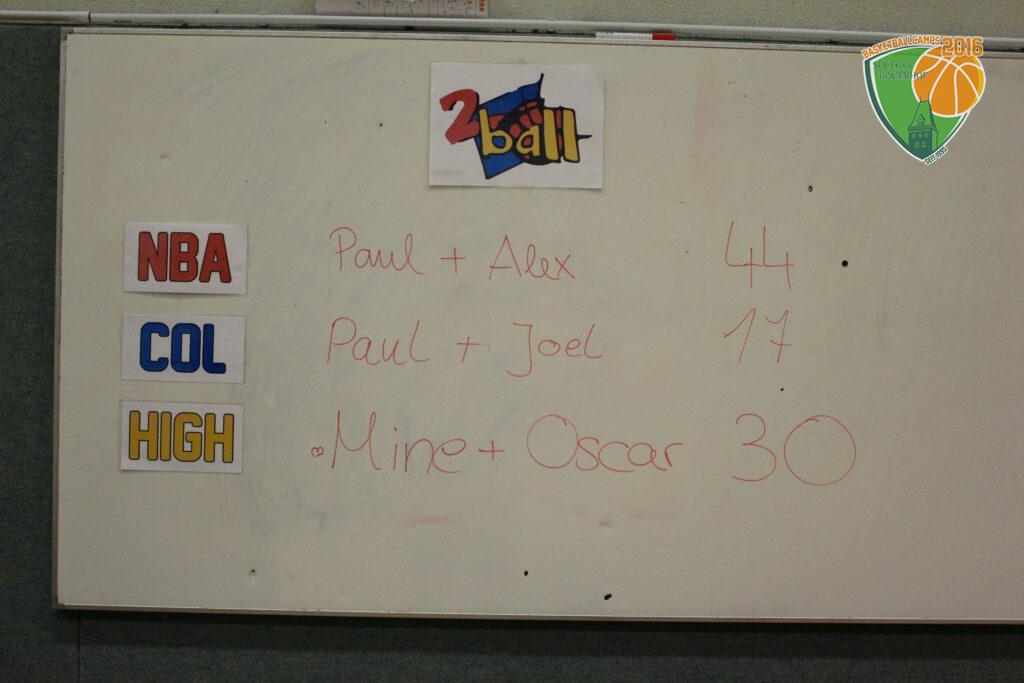 BASKETBALLCAMPS 2016
2ball
NBA Paul + Alex 44
COL Paul + Joel 17
HIGH Mine + Oscar 30